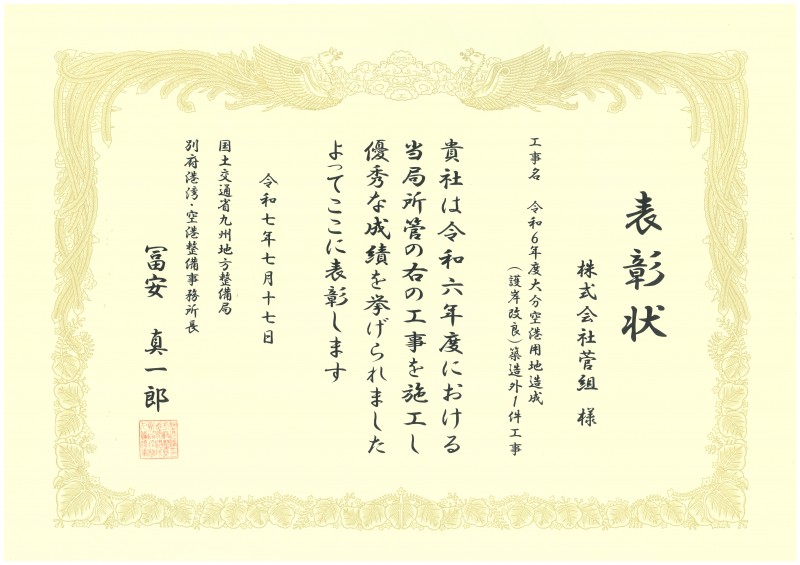 表彰状
株式会社菅組 様
工事名 令和6年度大分空港用地造成
(護岸改良)築造外1件工事
貴社は令和六年度における
当局所管の右の工事を施工し
優秀な成績を挙げられました
よってここに表彰します
令和七年七月十七日
国土交通省九州地方整備局
別府港湾・空港整備事務所長
冨安 真一郎